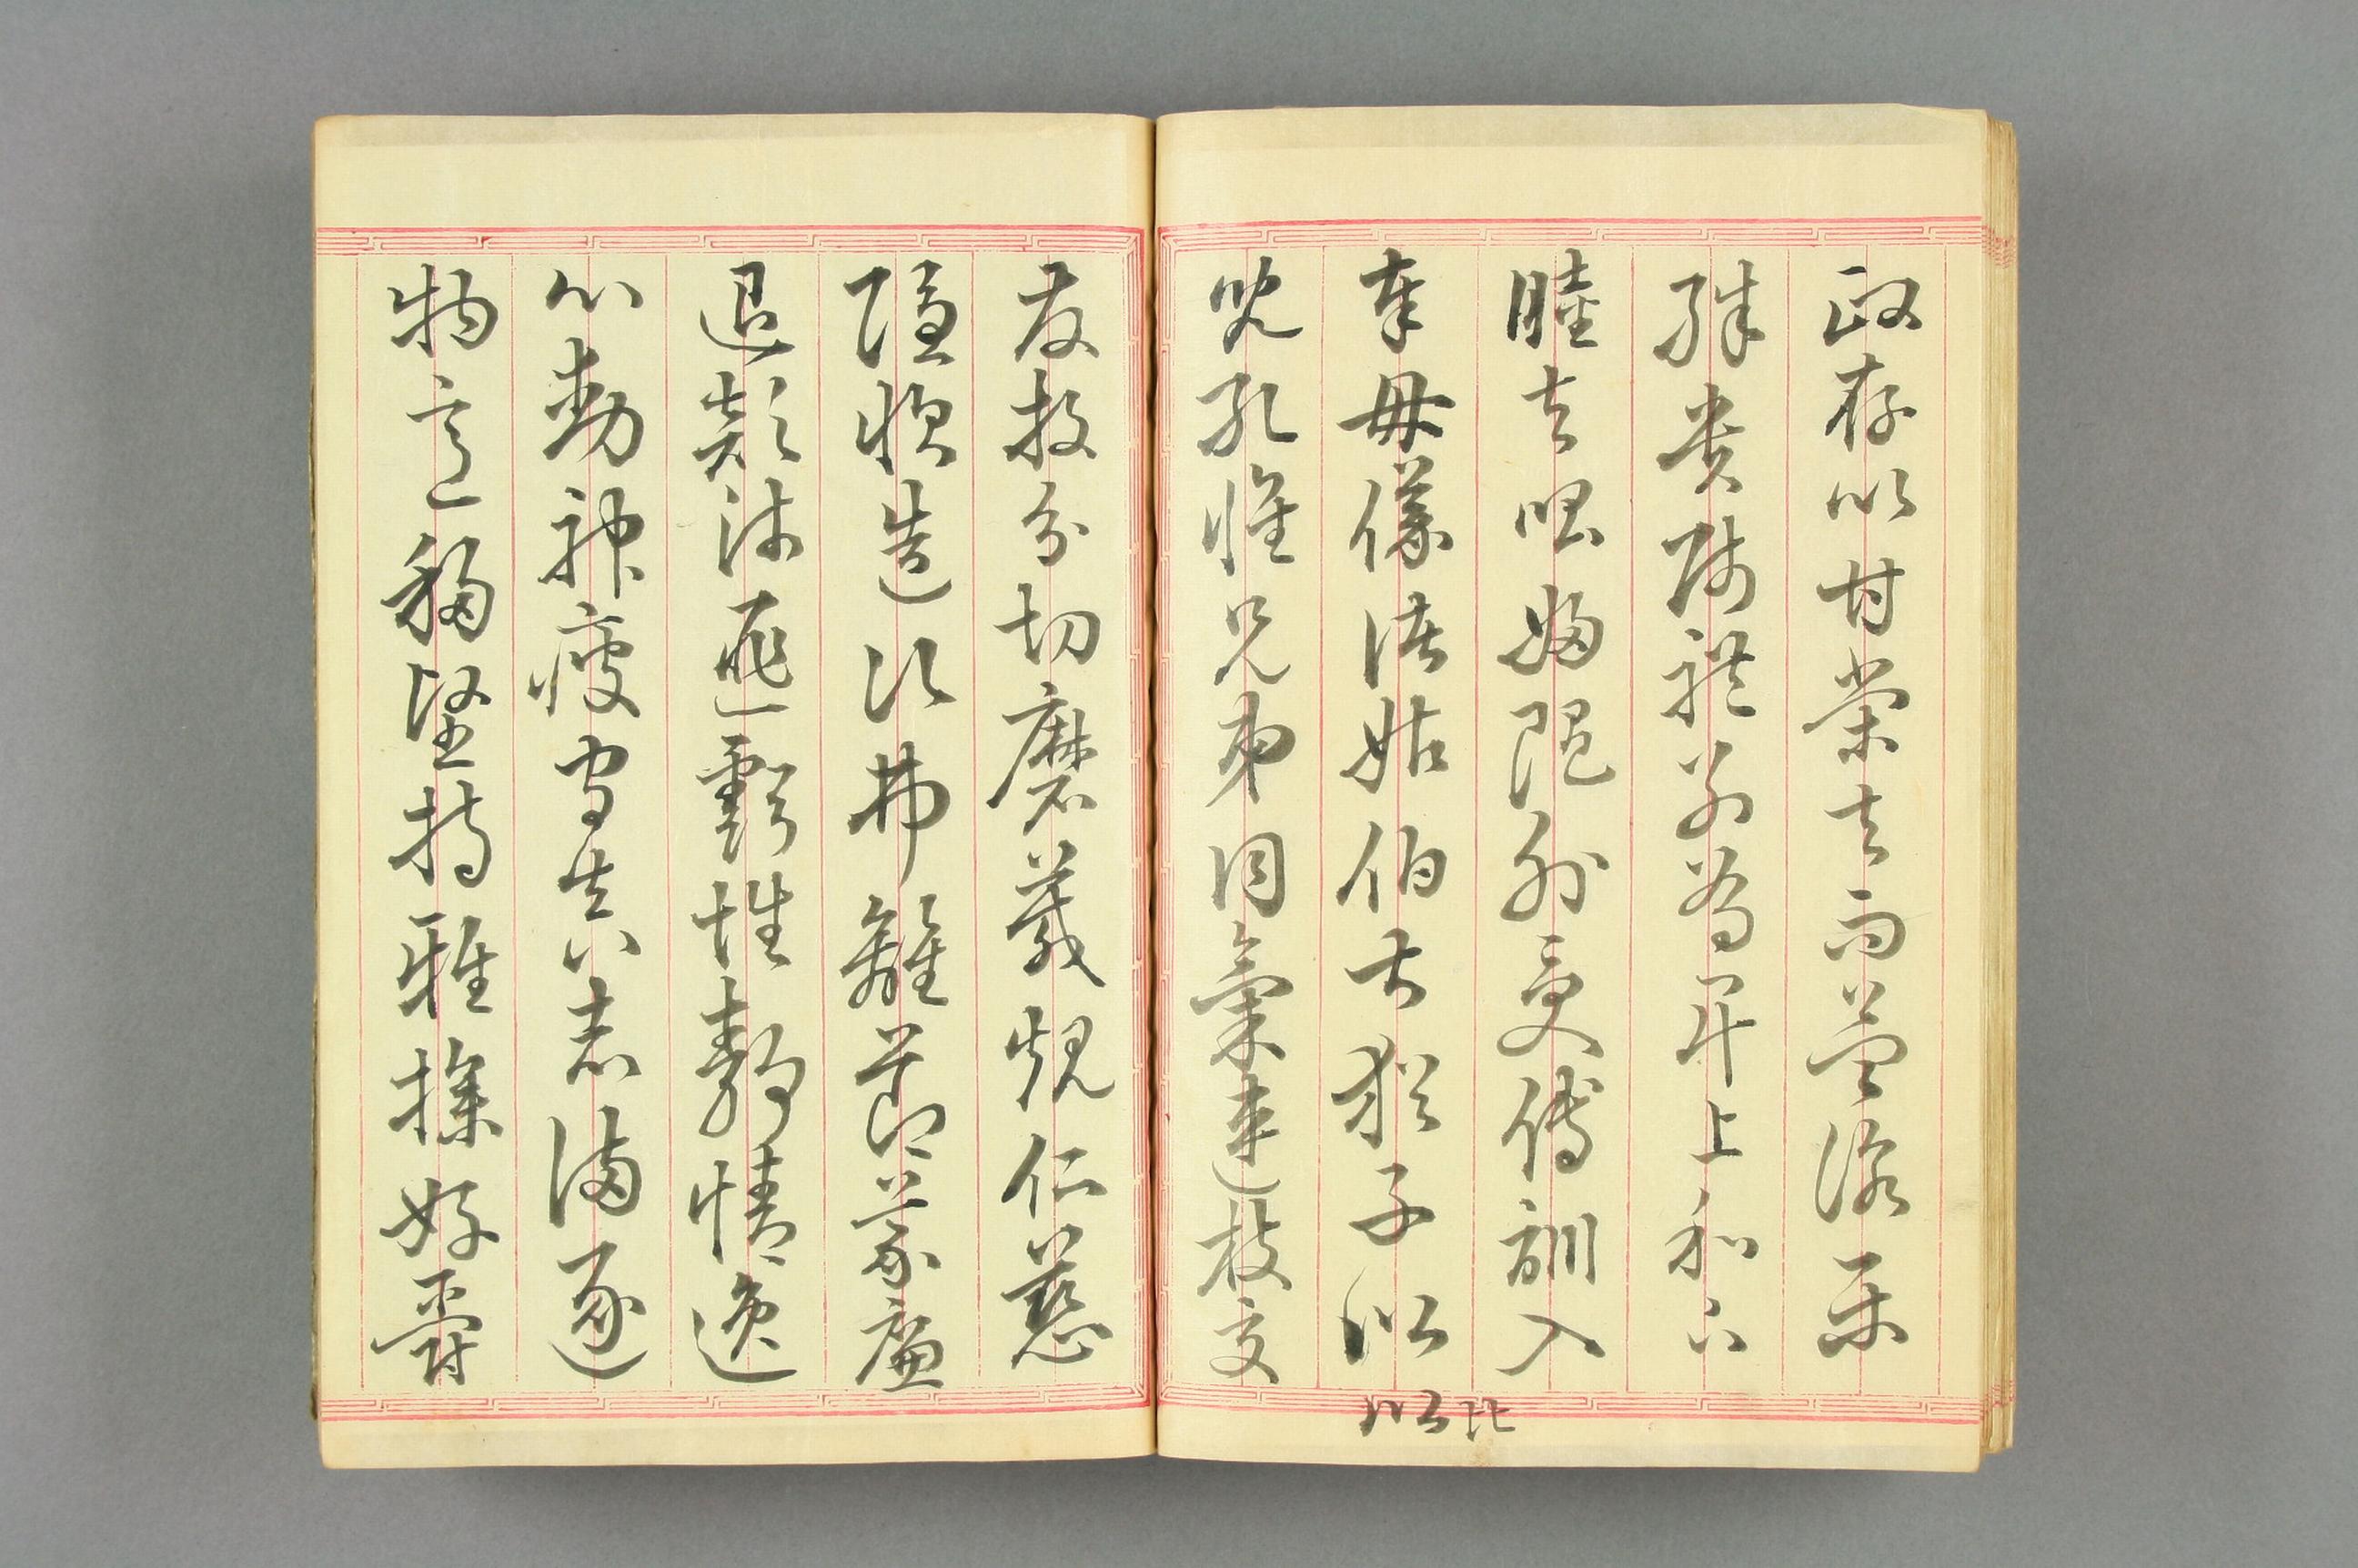 政存以甘棠去而益詠樂
殊貴賤禮別尊卑上和下
睦夫唱婦隨外受傅訓入
奉母儀諸姑伯叔猶子以
兒孔懷兄弟同氣連枝交
比以
友投分切磨箴規仁慈
隱惻造次弗離節義廉
退顛沛匪虧性靜情逸
心動神疲守真志滿逐
物意移堅持雅操好爵